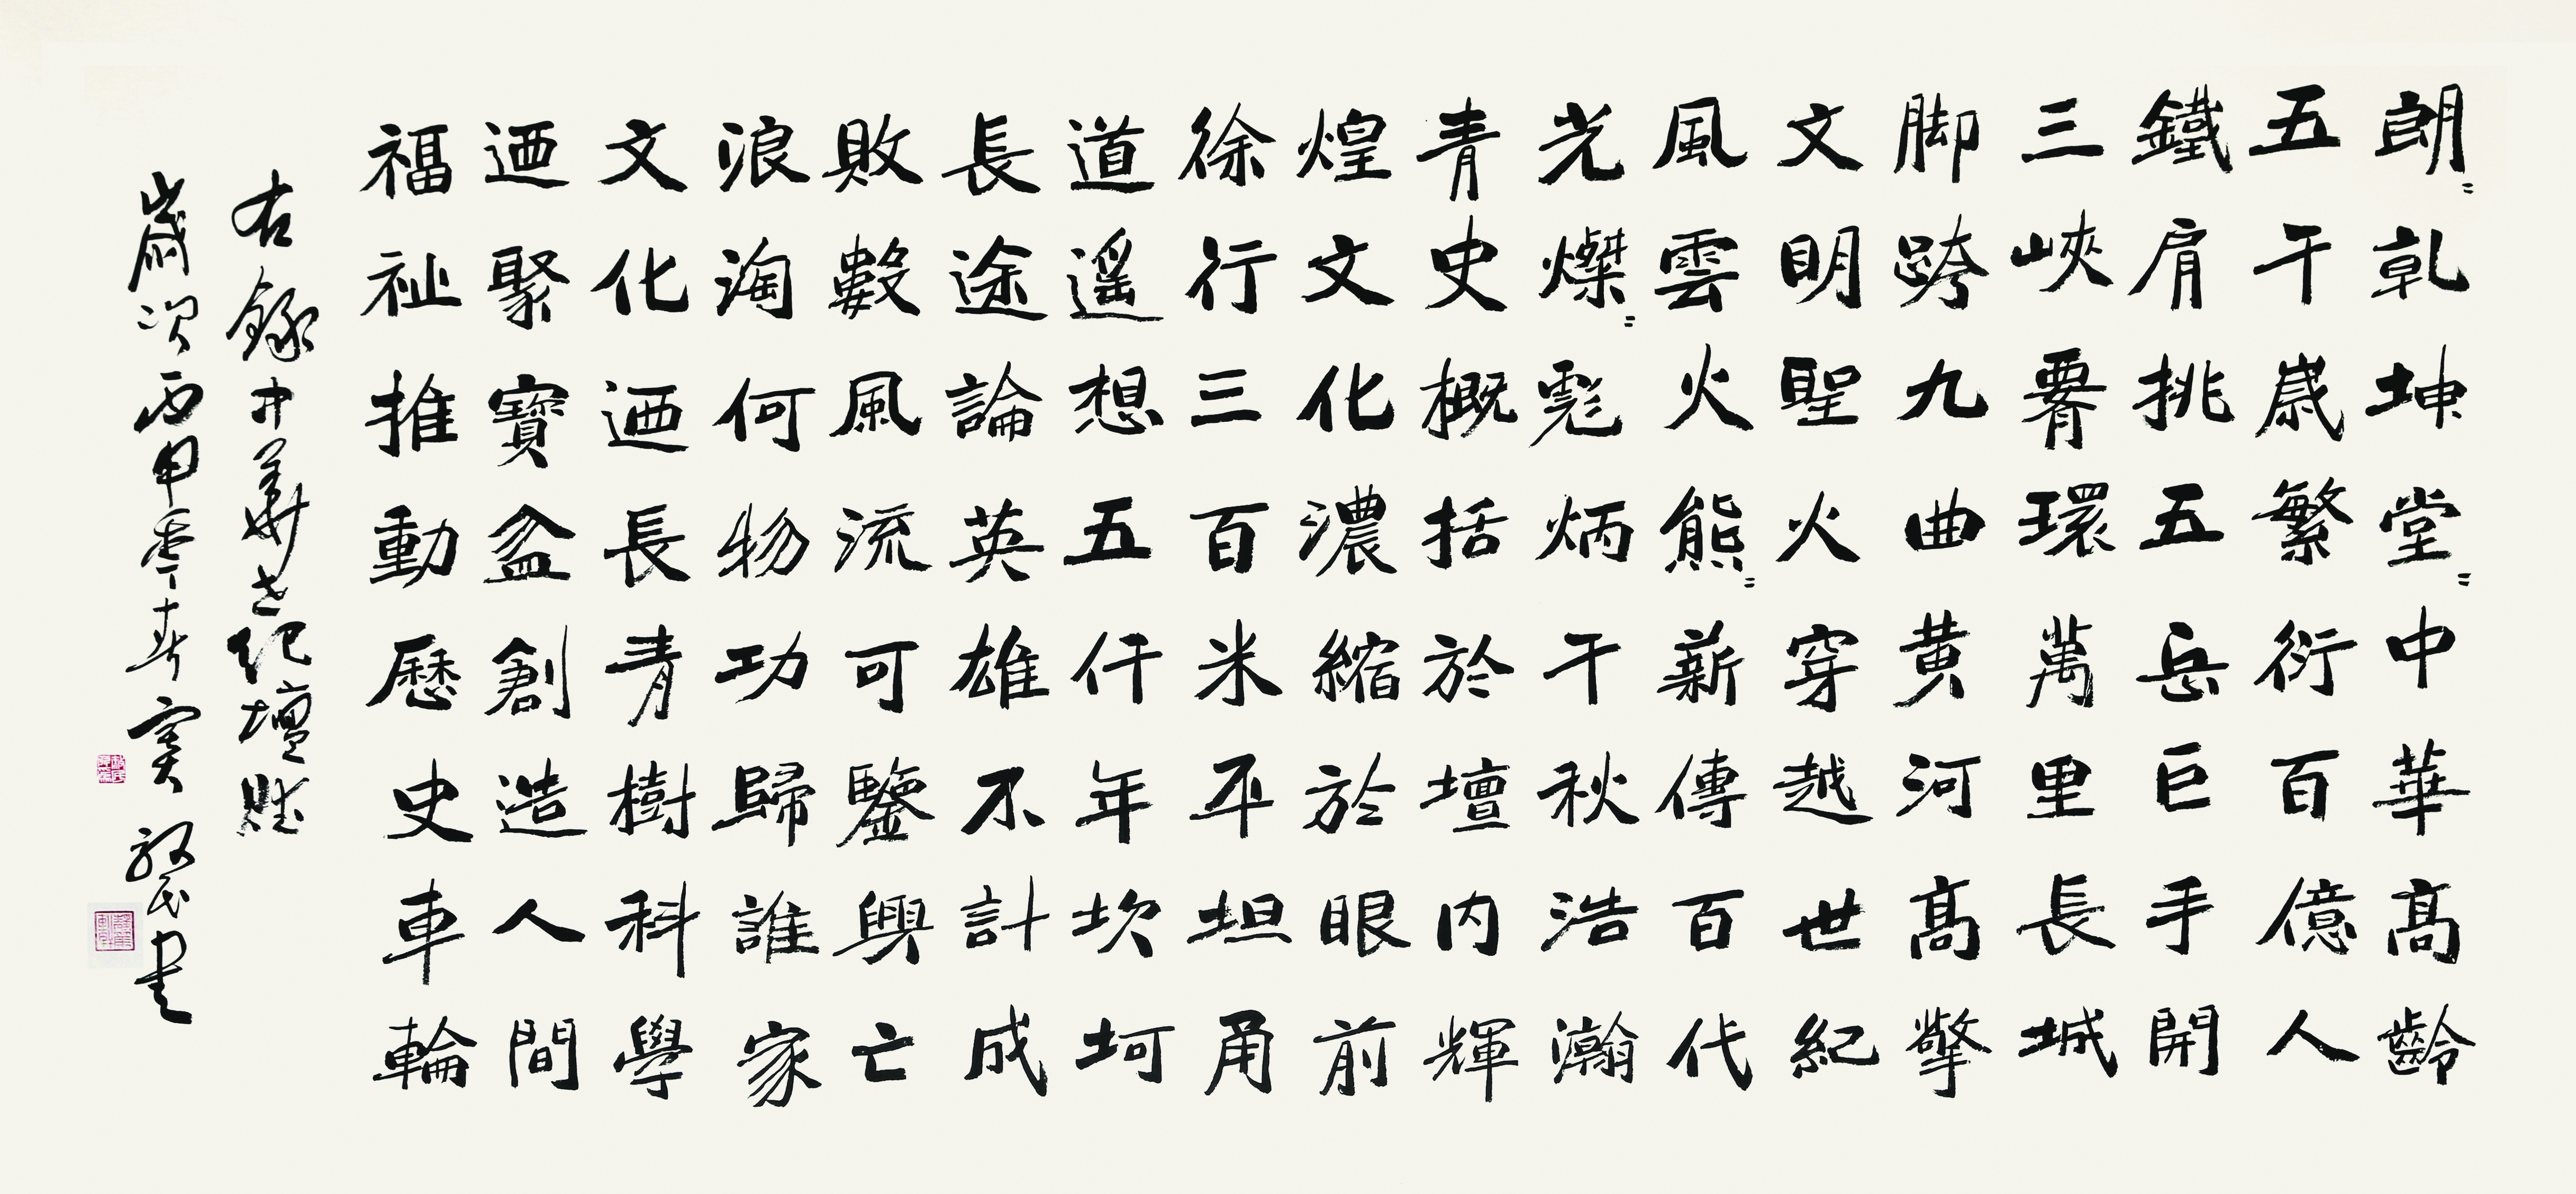 朗〻乾坤堂〻中華高齡
五千歲繁衍百億人
鐵肩挑五岳巨手開
三峽臂環萬里長城
脚跨九曲黄河高擎
文明聖火穿越世紀
風雲火熊〻薪傳百代
光燦〻彪炳千秋浩瀚
青史概括於壇内輝
煌文化濃縮於眼前
徐行三百米平坦甬
道遥想五仟年坎坷
長途論英雄不計成
敗數風流可鑒興亡
浪淘何物功歸誰家
文化迺長青樹科學
迺聚寶盆創造人間
福祉推動歷史車輪
右錄中華世紀壇賦
歲次丙申季春民書